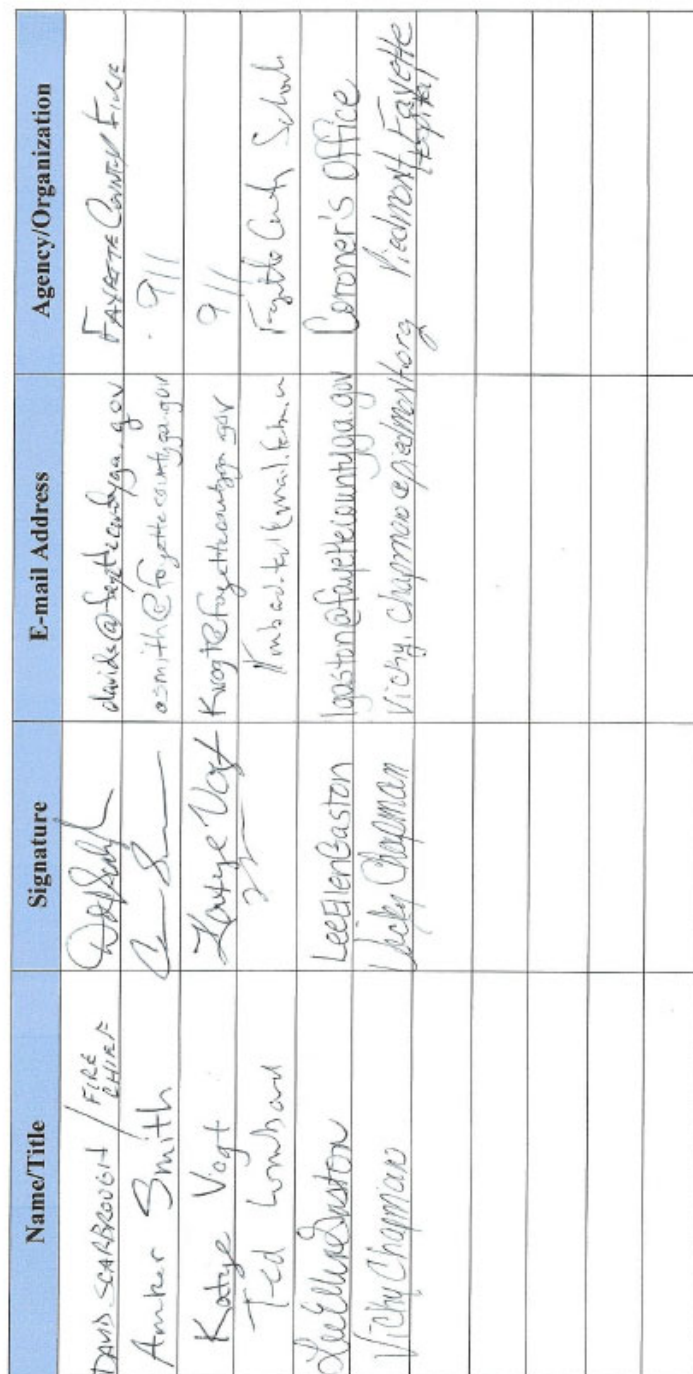 Name/Title Signature E-mail Address Agency/Organization
DAVID SCARBROUGH / FIRE CHIEF davids@fayettecountyga.gov FAYETTE COUNTY FIRE
Amber Smith asmith@fayettecountyga.gov 911
Katye Vogt Katye Vogt Kvogt@fayettecountyga.gov 911
Ted Lombard Fayette County Schools
LeeEllenGaston LeeEllenGaston lgaston@fayettecountyga.gov Coroner's Office
Vicky Chapman Vicky Chapman Vicky.Chapman@piedmont.org Piedmont Fayette Hospital